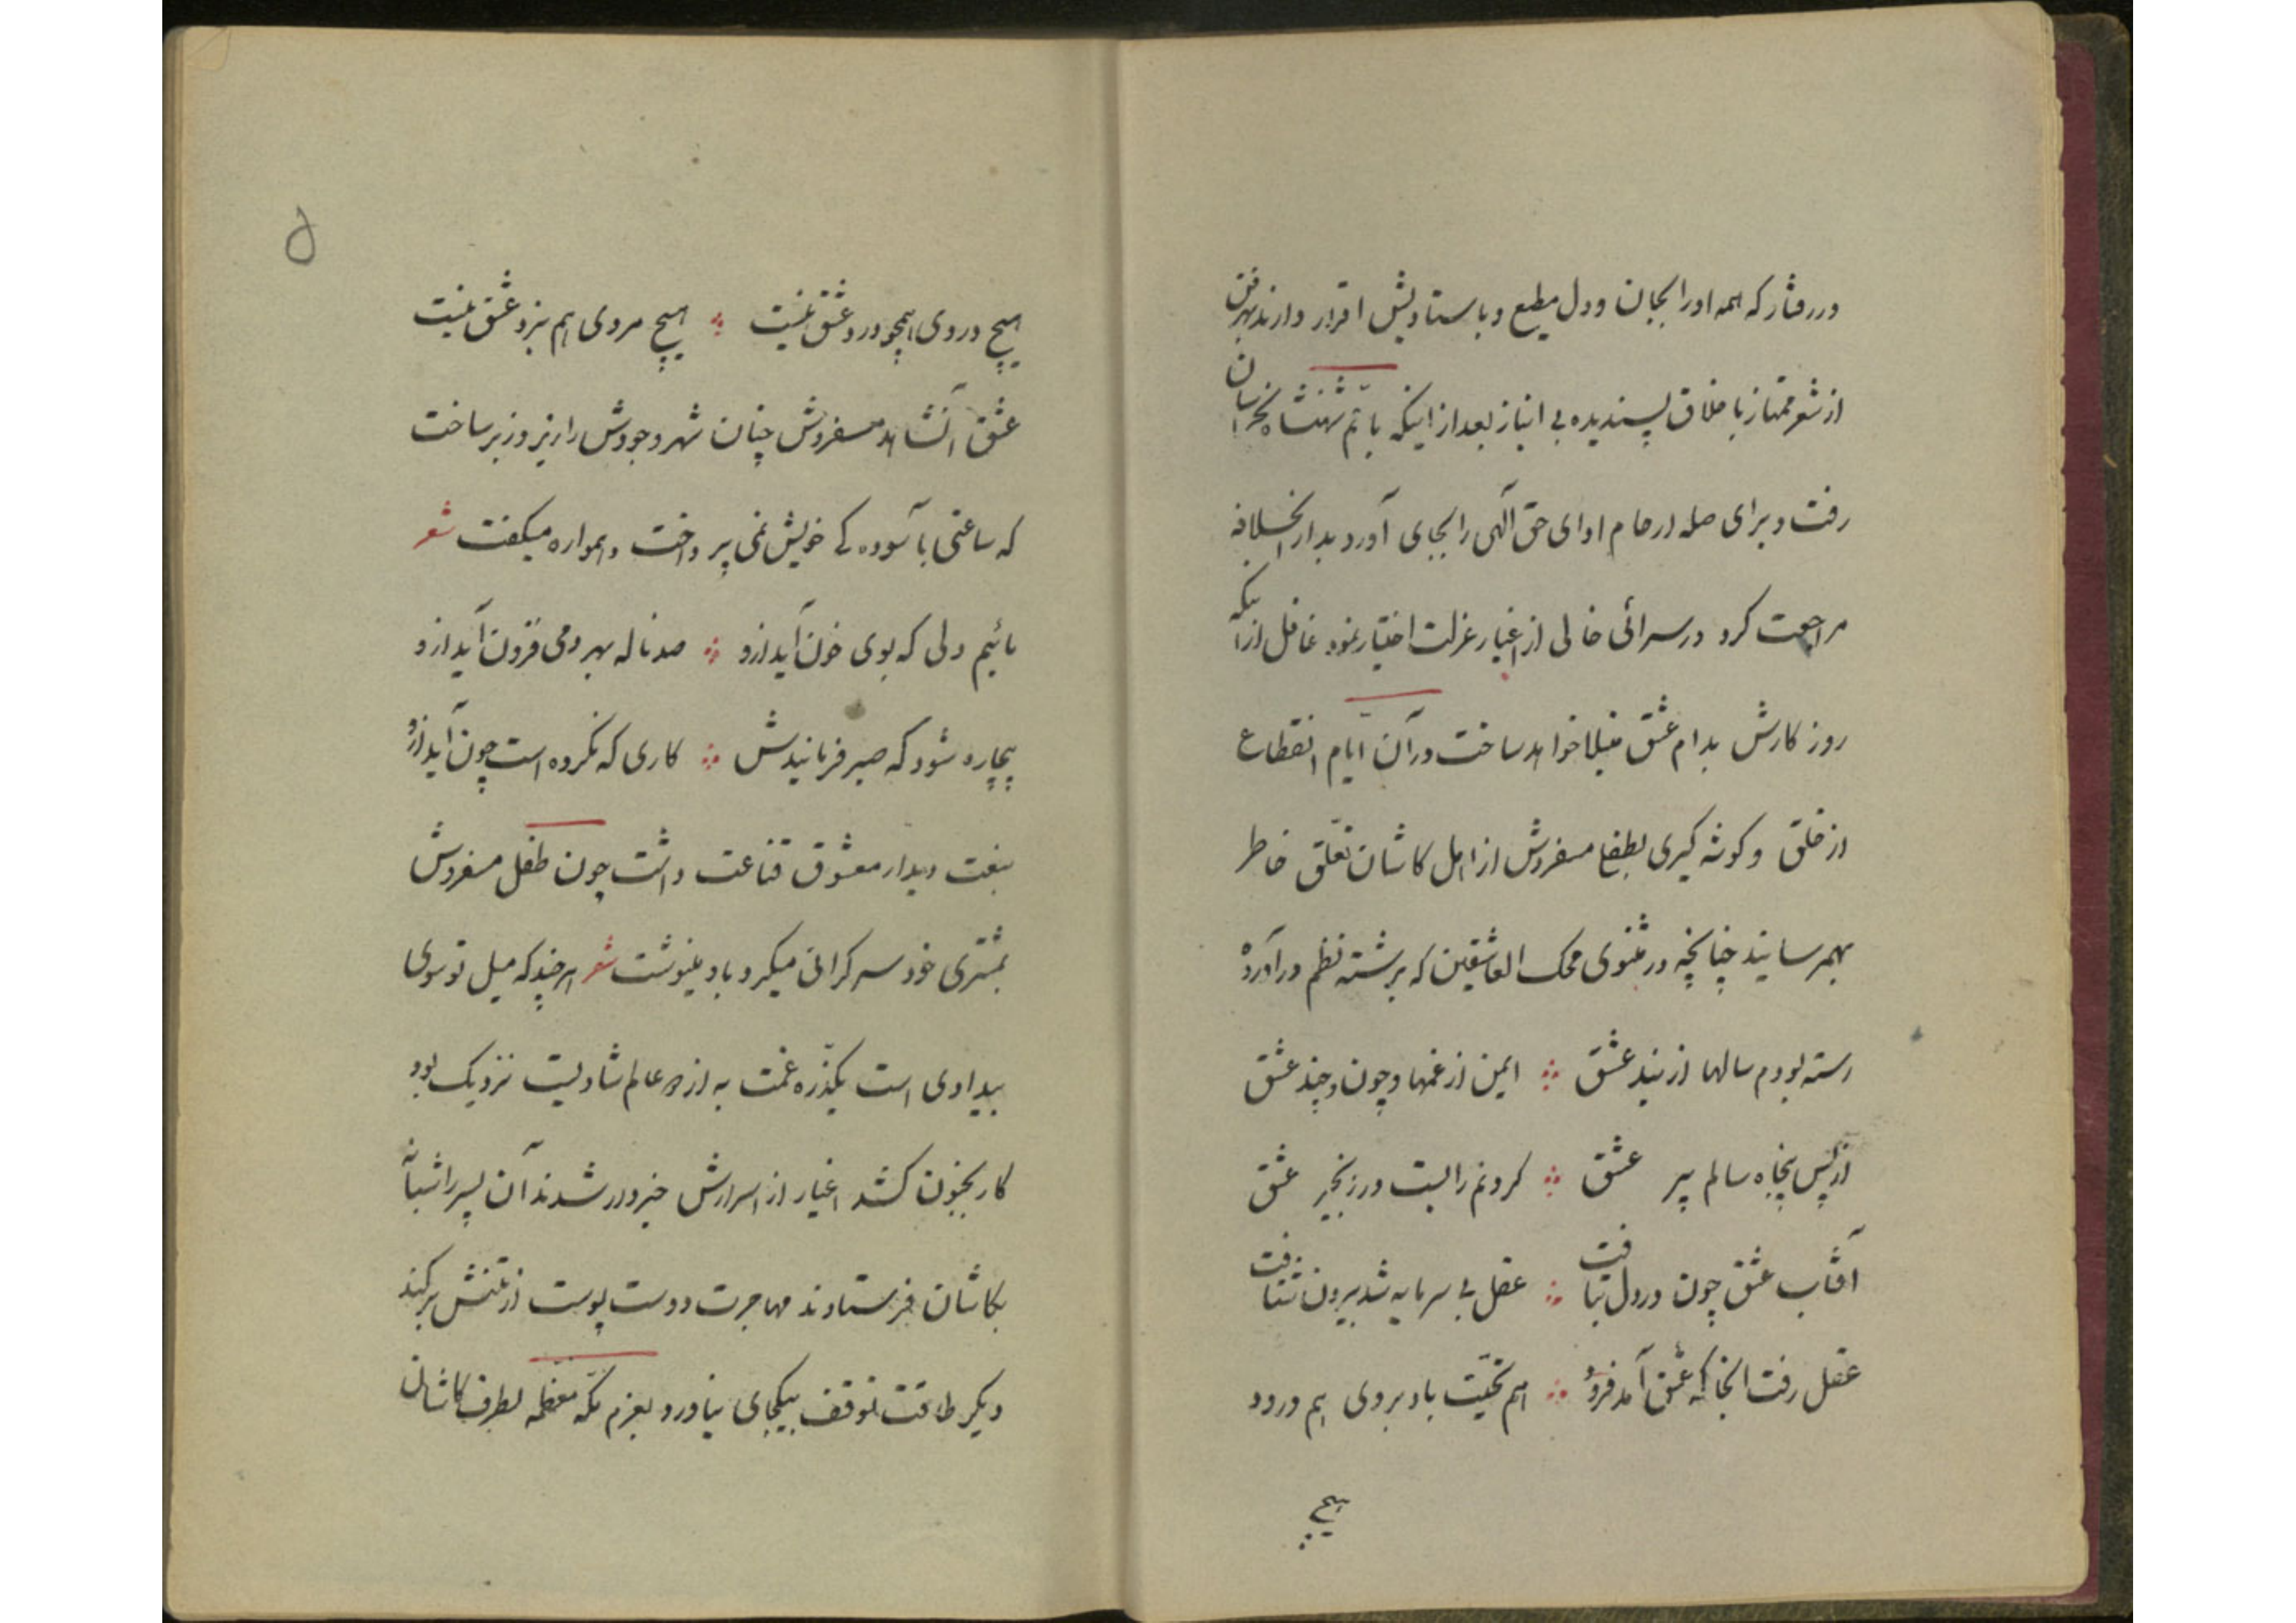 در رفتار که همه او را بجان و دل مطیع و باستادیش اقرار دارند بهر فن
از شعر ممتاز باخلاق پسندیده بی انباز بعد از اینکه با تم شهنشاه بخراسان
رفت و برای صله ارحام ادای حق آلهی را بجای آورد بدار الخلافه
مراجعت کرد در سرائی خالی از اغیار عزلت اختیار نمود غافل از آنکه
روزکارش بدام عشق مبتلا خواهد ساخت در آن ایام انقطاع
از خلق و کوشه کیری بطفل مسفروش از اهل کاشان تعلق خاطر
بهمرسانید چنانچه در مثنوی محک العاشقین که برشته نظم در آورده
رسته بودم سالها از بند عشق ∴ ایمن از غمها و چون و چند عشق
از پس پنجاه سالم پیر عشق ∴ کردنم را بست در زنجیر عشق
آفتاب عشق چون در دل بتافت ∴ عقل بی سرمایه شد بیرون شتافت
عقل رفت آنجا که عشق آمد فرود ∴ هم تحیت باد بر وی هم درود
هیچ
۵
هیچ دردی همچو درد عشق نیست ∴ هیچ مردی هم نبرد عشق نیست
عشق آنشاهد مسفروش چنان شهر وجودش را زیر و زبر ساخت
که ساعتی با آسوده کی خویش نمی پرداخت و همواره میکفت شعر
مائیم دلی که بوی خون آید ازو ∴ صد ناله بهر دمی فزون آید ازو
بیچاره شود که صبر فرمانیدش ∴ کاری که نکرده است چون آید ازو
بنعت دیدار معشوق قناعت داشت چون طفل مسفروش
بمشتری خود سر کرانی میکرد باو مینوشت شعر هر چند که میل تو بسوی
بیدادی است یکذره غمت به از دو عالم شادیست نزدیک بود
کار بجنون کشد اغیار از اسرارش خبردار شدند آن پسر را شبانه
بکاشان فرستادند مهاجرت دوست پوست از تنش بر کند
دیکر طاقت توقف بیکجای نیاورد بعزم مکه معظمه بطرف کاشان